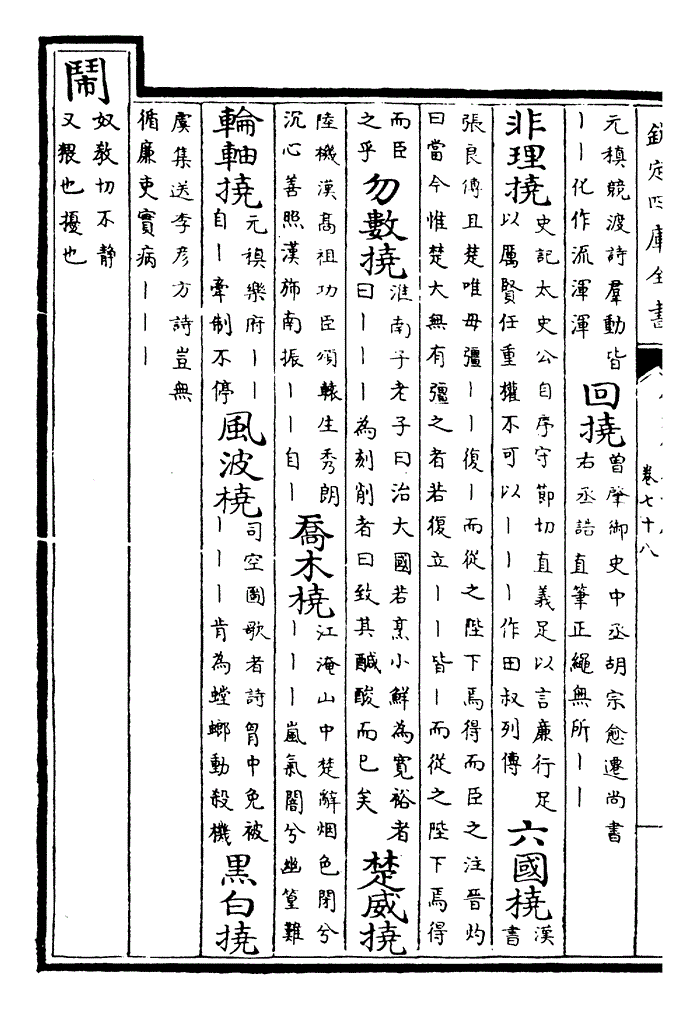 欽定四庫全書
卷七十八
元稹競波詩羣動皆
丨丨化作流渾渾
回撓
曾肇御史中丞胡宗愈遷尚書
右丞誥直筆正繩無所丨丨
非理撓
史記太史公自序守節切直義足以言廉行足
以厲賢任重權不可以丨丨丨作田叔列傳
六國橈
漢
書
張良傳且楚唯毋彊丨丨復丨而從之陛下焉得而臣之注晉灼
曰當今惟楚大無有彊之者若復立丨丨皆丨而從之陛下焉得
而臣
之乎
勿數撓
淮南子老子曰治大國若烹小鮮為寛裕者
曰丨丨丨為刻削者曰致其鹹酸而已矣
楚威撓
陸機漢髙祖功臣頌轅生秀朗
沉心善照漢斾南振丨丨自丨
喬木橈
江淹山中楚辭烟色閉兮
丨丨丨嵐氣闇兮幽篁難
輪軸撓
元稹樂府丨丨
自丨牽制不停
風波橈
司空圖歌者詩胷中免被
丨丨丨肯為螳螂動殺機
黒白撓
虞集送李彦方詩豈無
循廉吏實病丨丨丨
鬧
奴教切不静
又猥也擾也